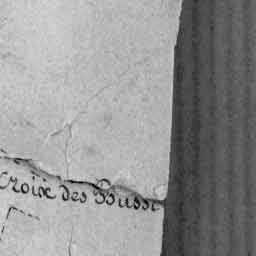 Croix des Bussi